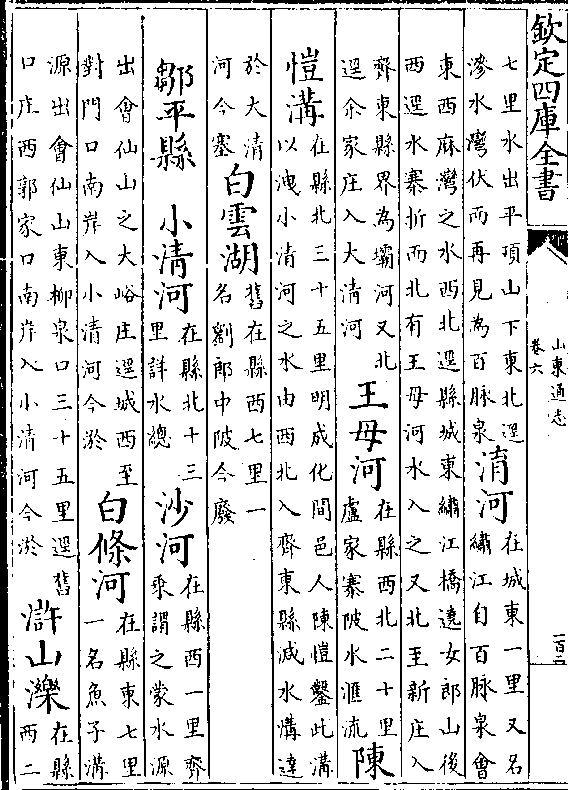 欽定四庫全書
山東通志
卷六
七里水出平項山下東北逕
滲水灣伏而再見為百脉泉
淯河
在城東一里又名
繡江自百脉泉會
東西麻灣之水西北逕縣城東繡江橋遶女郎山後
西逕水寨折而北有王母河水入之又北至新庄入
齊東縣界為壩河又北
逕余家庄入大清河
王母河
在縣西北二十里
盧家寨陂水滙流
陳
愷溝
在縣北三十五里明成化間邑人陳愷鑿此溝
以洩小清河之水由西北入齊東縣減水溝達
於大清
河今塞
白雲湖
舊在縣西七里一
名劉郎中陂今廢
鄒平縣 小清河
在縣北十三
里詳水總
沙河
在縣西一里齊
乘謂之蒙水源
出會仙山之大峪庄逕城西至
對門口南岸入小清河今淤
白條河
在縣東七里
一名魚子溝
源出會仙山東柳泉口三十五里逕舊
口庄西郭家口南岸入小清河今淤
滸山濼
在縣
西二